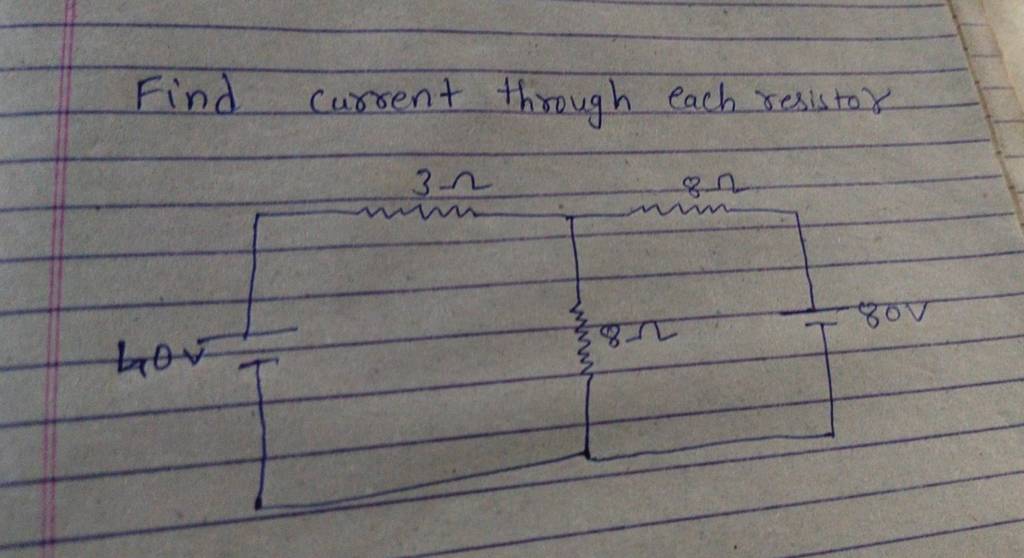 Find current through each resistor
3Ω 8Ω
40v 8Ω 80V